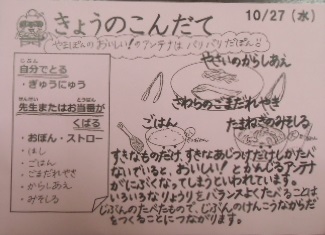 きょうのこんだて
10/27（水）
やまぽんのおいしい！のアンテナは バリバリだぽん
自分でとる
・ぎゅうにゅう
先生またはお当番が
くばる
・おぼん・ストロー
・はし
・ごはん
・ごまだれやき
・からしあえ
・みそしる
やさいのからしあえ
さわらのごまだれやき
ごはん
たまねぎのみそしる
すきなものだけ、すきなあじつけだけしかたべ
ないでいると、おいしい！とかんじるアンテナ
がにぶくなってしまうといわれています。
いろいろなりょうりをバランスよくたべることは
じぶんのたべたもので、じぶんのけんこうなからだ
をつくることにつながります。